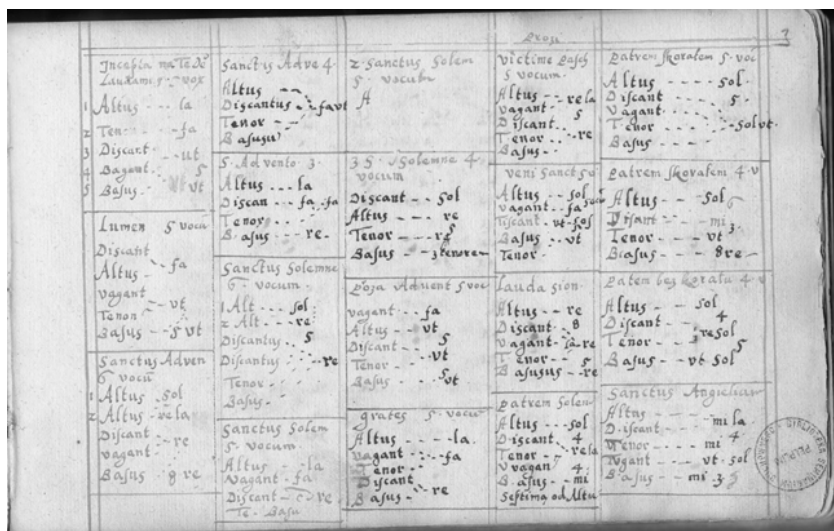 3
Lauxami 5 vox
1 Altus la
2 Ten fa
3 Discant ut
4 Bagant 5
5 Basus vt
Lumen 5 vocu
Discant
Altus fa
vagant
Tenor vt
Basus 5 vt
Sanctus Adven
6 vocu
1 Altus sol
2 Altus re la
Discant re
vagant
Basus 8 re
Sanctus Adve 4
Altus
Discantus fa vt
Tenor
Basusu
S. Advento 3.
Altus la
Discan fa fa
Tenor
Basus re
Sanctus Solemne
6 vocum
1 Alt sol
2 Alt re
Discantus 5
Discantus re
Tenor
Basus
Sanctus Solem
5 vocum
Altus la
Vagant fa
Discant re
Te Basu
2 Sanctus Solem
5 vocum
A
3 S Solemne 4
vocum
Discant Sol
Altus re
Tenor 5
Basus 3 tenore
Advent 5 voc
vagant fa
Altus vt
Discant 5
Tenor vt
Basus 5 vt
grates 5 vocu
Altus la
Vagant fa
Tenor
Discant
Basus re
Prosu
victime Pasch
5 vocum
Altus re la
vagant 5
Discant
Tenor re
Basus
veni Sanct
Altus sol
vagant fa
Discant vt sol
Basus vt
Tenor
Lauda sion
Altus re
Discant 8
Vagant re
Tenor 5
Basusus re
patrem Solen
Altus sol
Discant 4
Tenor re la
vvagan 4
Basus mi
Septima od Altu
Patrem skoralem 5 voc
Altus Sol
Discant 5
Vagant
Tenor Sol vt
Basus
Patrem skoralem 4 v
Altus Sol
Discant mi
Tenor vt
Basus 8 re
Patem bez koralu 4 v
Altus sol
Discant 4
Tenor re sol
Basus vt sol
Sanctus Angielicum
Altus mi la
Discant 4
Tenor mi
Vgant vt sol
Basus mi 3